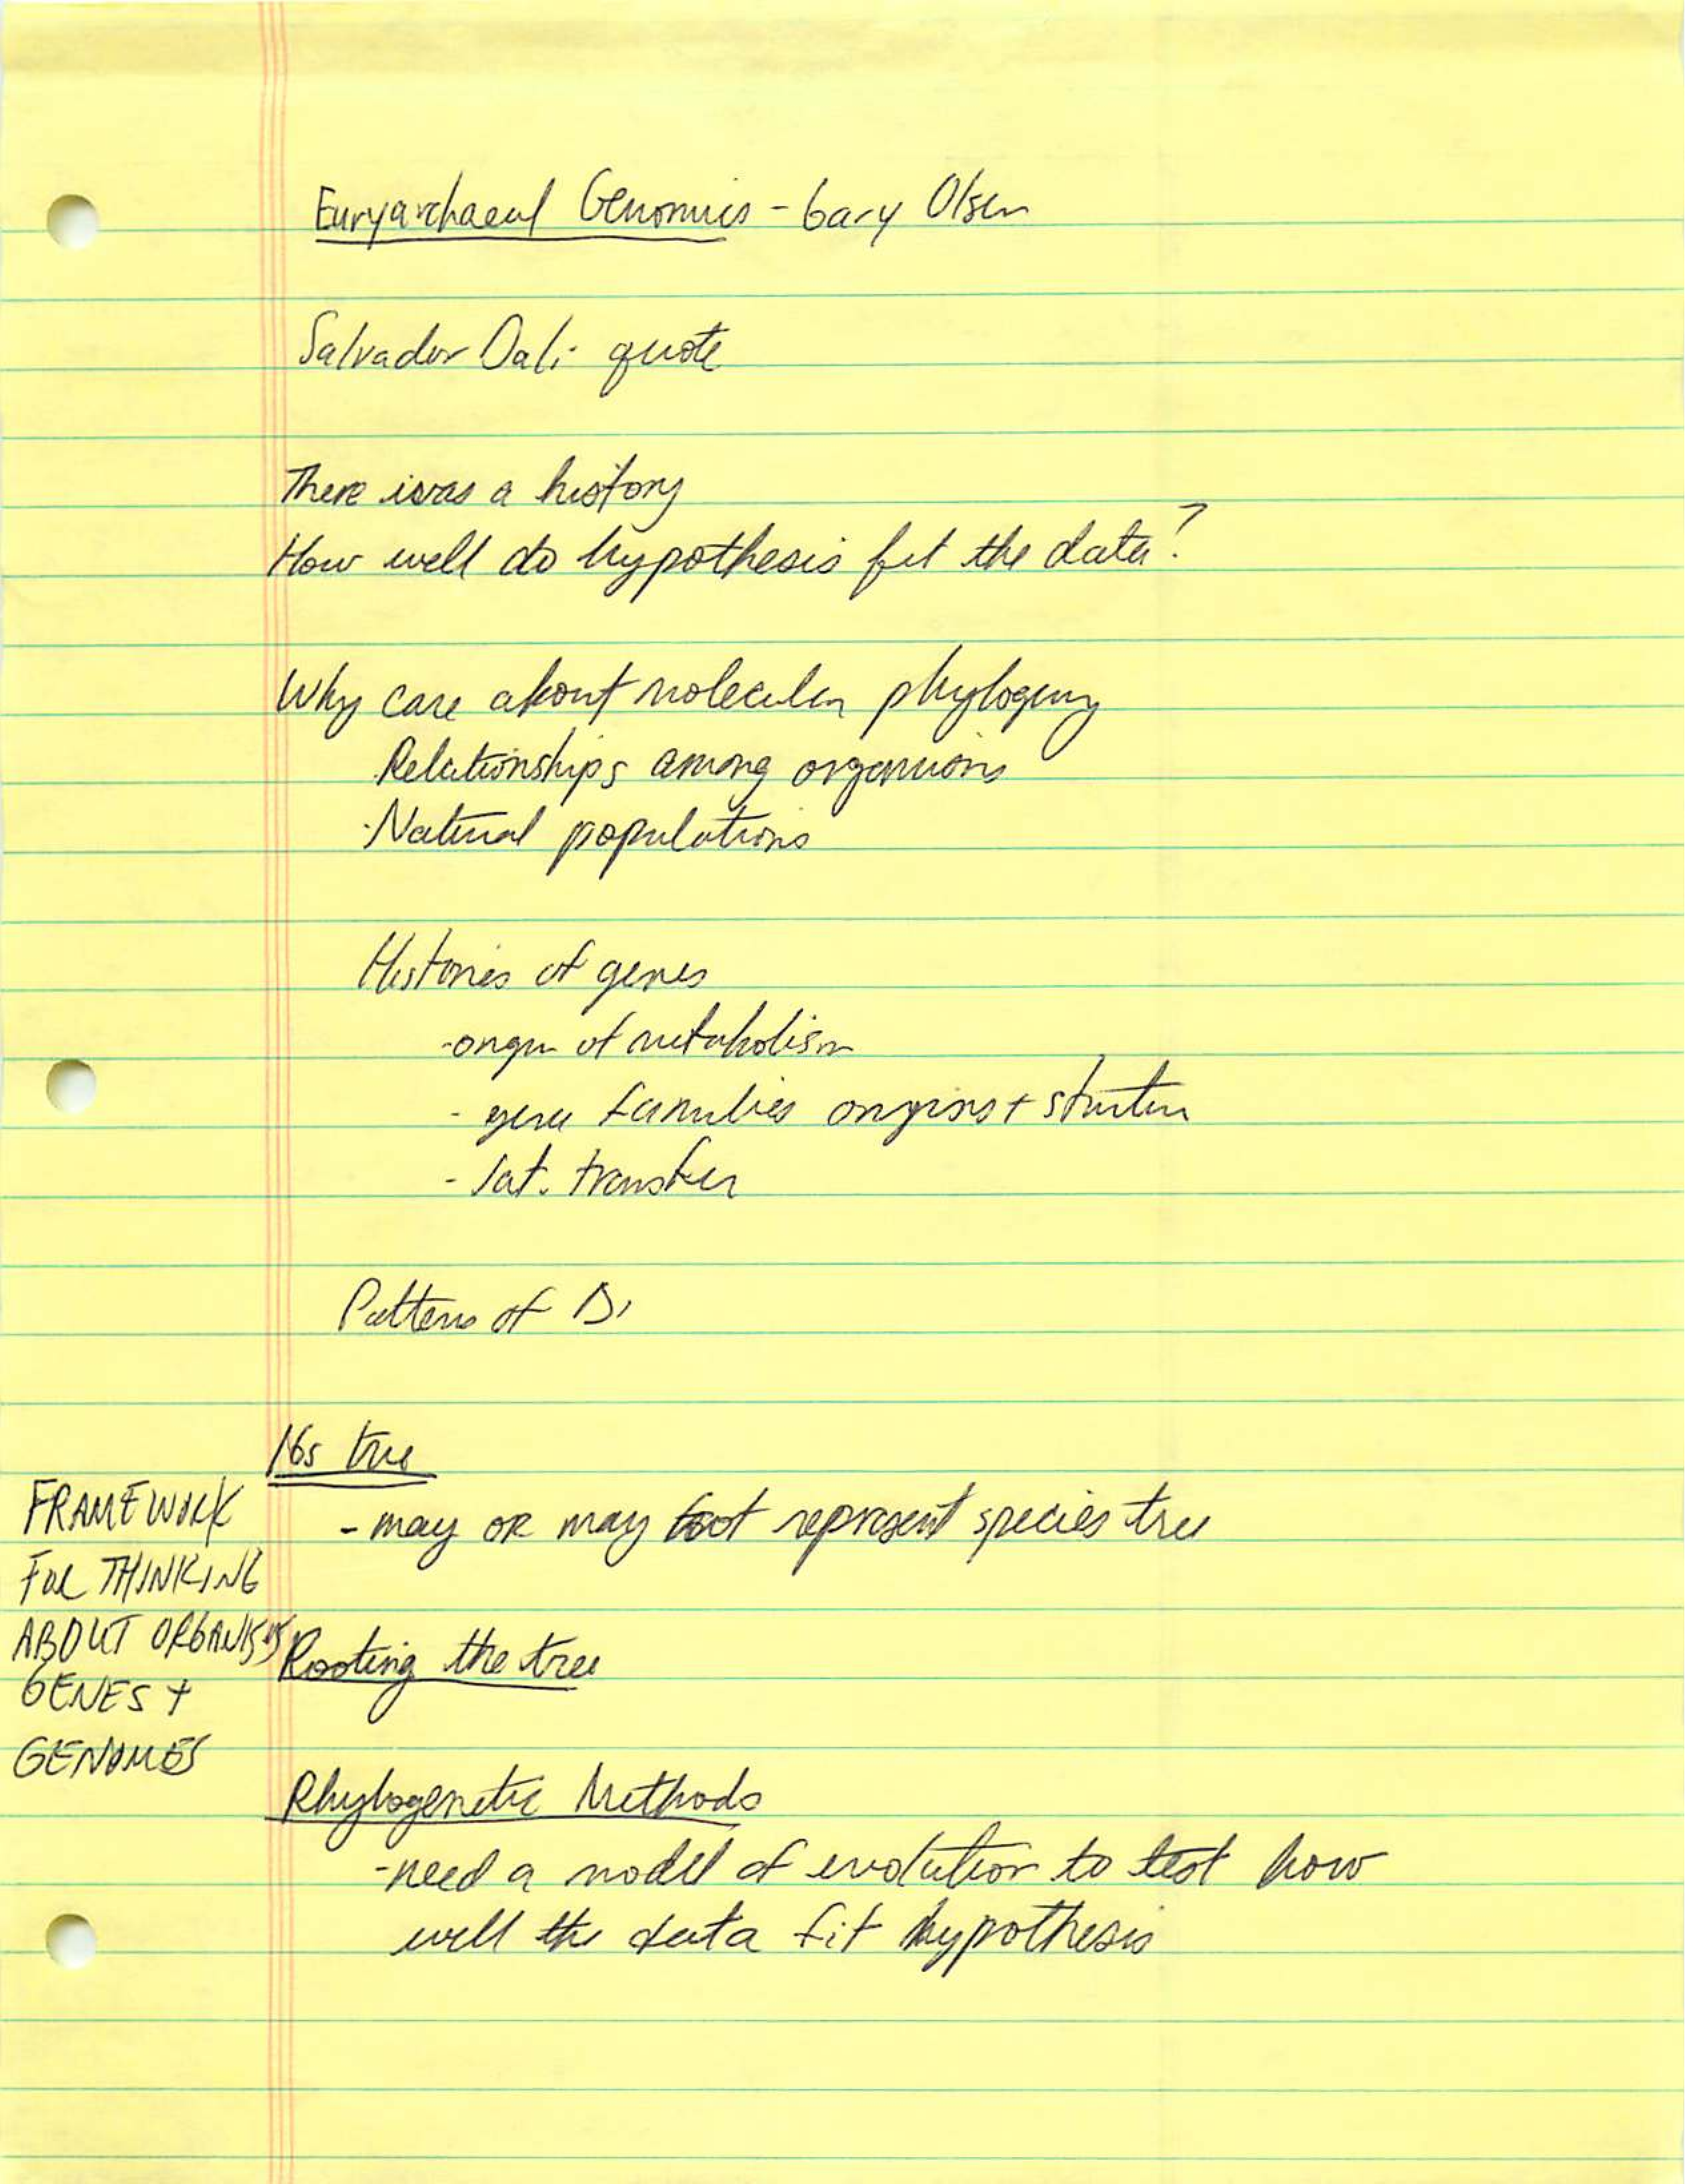 Euryarchaeal Genomics - Gary Olsen
Salvador Dali quote
There was a history
How well do hypothesis fit the data?
Why care about molecular phylogeny
Relationships among organisms
-Natural populations
Histories of genes
-origin of metabolism
- gene families origins + structure
- lat. transfer
Patterns of Di
16s tree
- may or may not represent species tree
FRAMEWORK
FOR THINKING
ABOUT ORGANISMS
GENES +
GENOMES
Rooting the tree
Phylogenetic Methods
-need a model of evolution to test how
well the data fit hypothesis